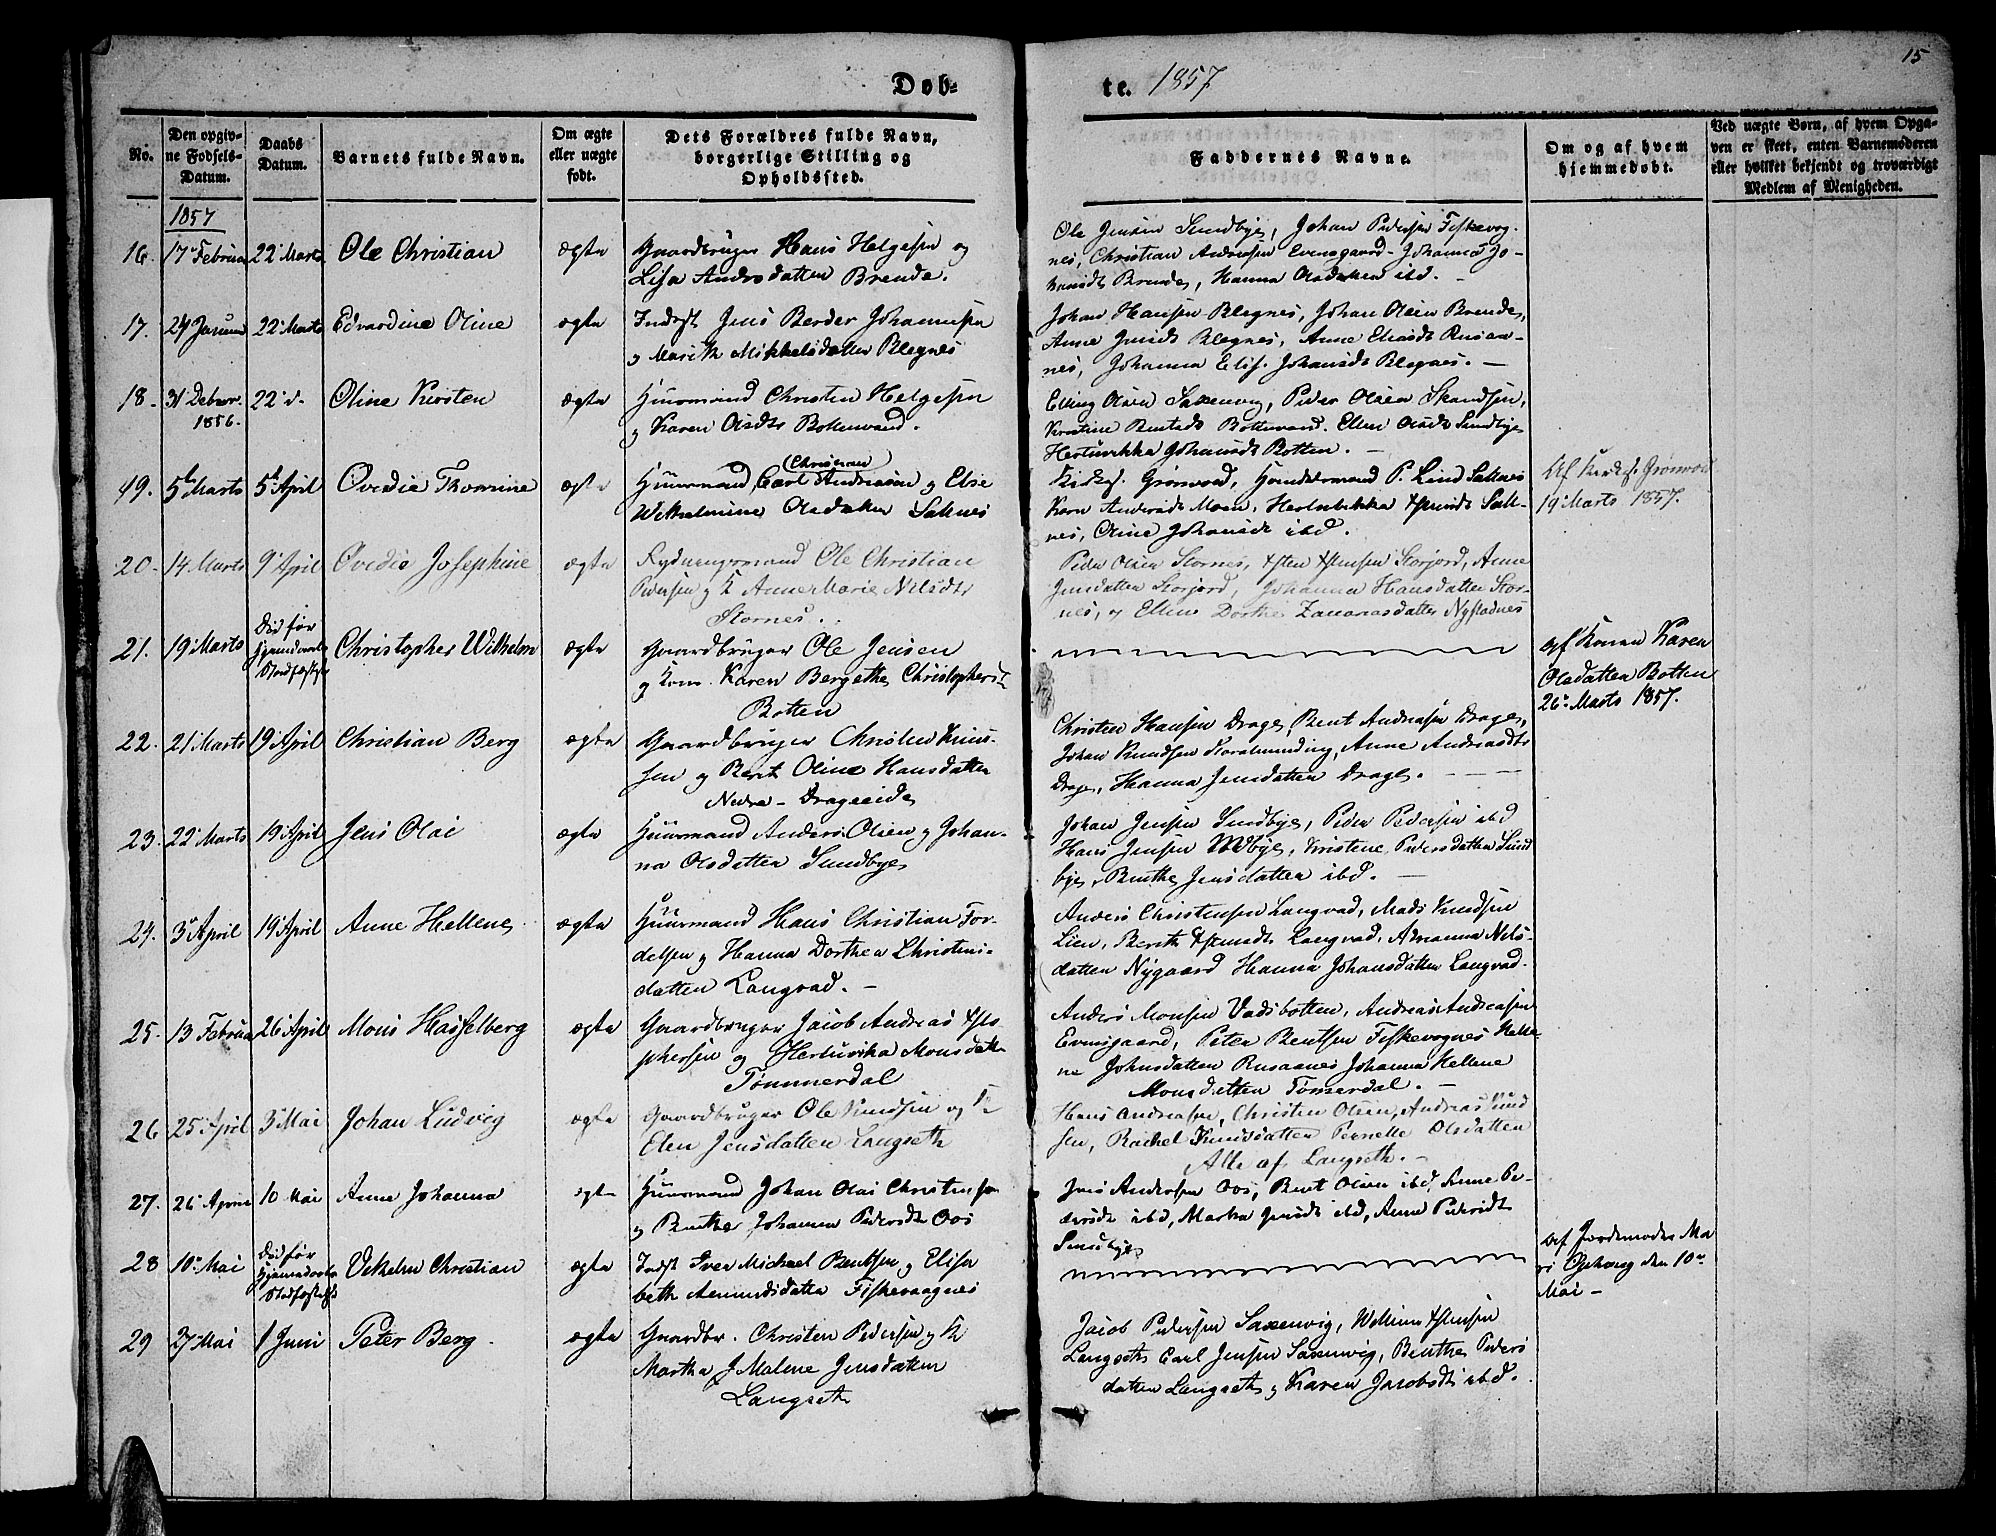 15
Døb-
te. 1857
No.
Den opgiv-
ne Fødsels-
Datum.
Daabs
Datum.
Barnets fulde Navn.
Om ægte
eller uægte
født.
Dets Forældres fulde Navn,
borgerlige Stilling og
Opholdssted.
Faddernes Navne.
Om og af hvem
hjemmedøbt.
Ved uægte Børn, af hvem Opga-
ven er skeet, enten Barnemoderen
eller hvilket bekjendt og troværdigt
Medlem af Menigheden.
1857
16. 17 Februar 22 Marts Ole Christian ægte Gaardbruger Hans Helgesen og
Lisa Andrsdatten Brende.
Ole Jensen Sundbye, Johan Pedersen Fiskevog-
nes, Christian Andreasen Evensgaard, Johanna Jo-
hansdt Brende, Hanna Olsdatten ibd.
17. 24 Januar 22 Marts Edvardine Oline ægte Inderst Jens Berder Johannesen
og Marith Mikkelsdatten Blegnes
Johan Hansen Blegnes, Johan Olsen Brende,
Anne Jensdt Blegnes, Anne Eliasdt Rusaa-
nes, Johanna Elis. Johansdt Blegnes.
18. 31 Decbr. 1856. 22 d. Oline Kirsten ægte Huusmand Christen Helgesen
og Karen Olsdtr Bottenvand.
Elling Olsen Saxenvig, Peder Olsen Skandsen,
Kirstine Bentsdt Bottenvand. Ellen Olsdt Sundbye
Hertinikka Johansdt Botten.
19. 5te Marts 5te April Ovedie Thomine ægte Huusmand (Christian) Carl Andreasen og Else
Wilhelmine Olsdatten Saltnes
Kirkes. Grønvold, Handelsmand P. Lind Saltnes
Karn Andersdt Moen,
nes, Oline Johansdt ibd.
Af Kirkes. Grønvold
19 Marts 1857.
20. 14 Marts 9 April Ovedie Josephine ægte Rydningsmand Ole Christian
Pedersen og K Anne Marie Nilsdtr
Stornes.
Peder Olsen Stornes, Storjord, Anne
Jensdatten Storjord, Johanna Hansdatten Stor-
nes, og Ellen Dorthe Zakariasdatter Nystadnes
21. 19 Marts Død før
Hjemmedaabs
Stadfæstelse Christopher Wilhelm ægte Gaardbruger Ole Jensen
og Kone Karen Bergethe Christophersdt
Botten
af Konen Karen
Olsdatten Botten
26 Marts 1857.
22. 21 Marts 19 April Christian Berg ægte Gaardbruger Christen Knud-
sen og Berit Oline Hansdatten
Nedre-Drageeide
Christen Hansen Drage, Bent Andreasen Drage,
Johan Knudsen, Anne Andreasdtr
Drage, Hanna Jensdatten Drage.
23. 22 Marts 19 April Jens Olai ægte Huusmand Anders Olsen og Johan-
na Olsdatten Sundbye
Johan Jensen Sundbye, Peder Pedersen ibd
Hans Jensen Medbye, Kristene Pedersdatten Sund
bye, Benthe Jensdatten ibd.
24. 3 April 19 April Anne Hellene ægte Huusmand Hans Christian For-
delsen og Hanna Dorthea Christens-
datten Langvad.
Anders Christensen Langvad, Mads Knudsen
Lien, Berith Langvad, Adrianna Nils-
datten Nygaard Hanna Johansdatten Langvad.
25. 13 Februar 26 April Mons Hasselberg ægte Gaardbruger Jacob Andreas
phersen og Hertuvika Monsdatt
Tømmerdal
Anders Monsen Vadsbotten, Andreas Andreasen
Evensgaard, Peter Bentsen Fiskevognes Helle-
ne Johnsdatten Rusaanes Johanna Hellene
Monsdatten Tømerdal.
26 25 April 3 Mai Johan Ludvig ægte Gaardbruger Ole Knudsen og K
Elen Jensdatten Langseth
Hans Andreasen, Christen Olsen, Andreas Knud
sen, Rachel Knudsdatten Pernelle Olsdatten
Alle af Langseth.
27. 26 April 10 Mai Anne Johanna ægte Huusmand Johan Olai Christensen
og Benthe Johanna Pedersdt Oos
Jens Andersen Oos, Bent Olsen ibd, Anne Pe-
dersdt ibd, Martha Jensdt ibd, Anne Pedersdt
Sundbye
28 10 Mai Død før
Hjemmedaabs
Stadfæstelse Vilhelm Christian ægte Indst Iver Michael Bentsen og Elisa
beth Amundsdatten Fiskevaagnes
af Jordemoder Ma
ri den 10
Mai
29 27 Mai 1 Juni Peter Berg ægte Gaardbr. Christen Pedersen og K
Martha J Malene Jensdatten
Langseth
Jacob Pedersen Saxenvig, Willum
Langseth Carl Jensen Saxenvig, Benthe Peders
datten Langseth og Karen Jacobsdt ibd.